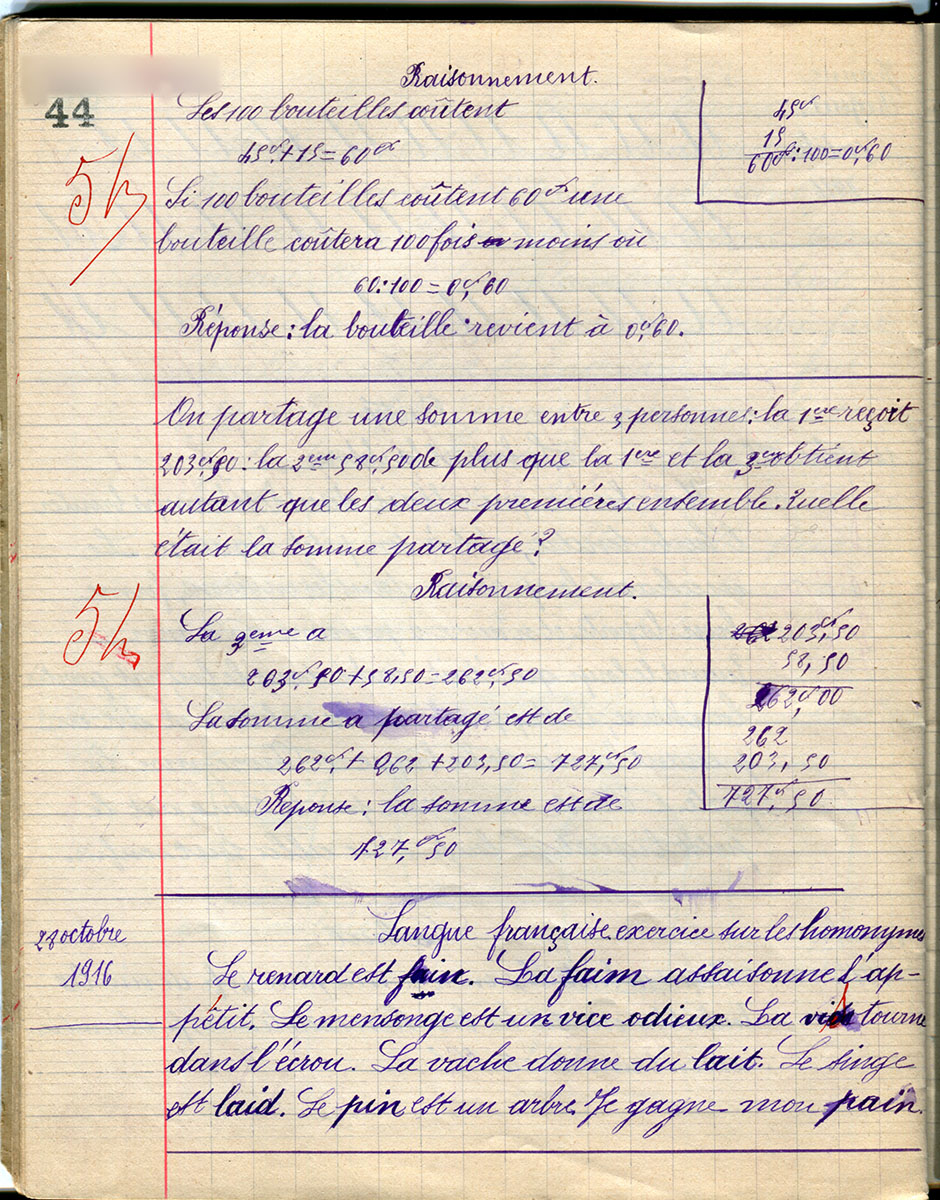 44
Raisonnement.
Les 100 bouteilles coûtent
45f + 15 = 60f
45f
15
60f : 100 = 0f,60
5/5
Si 100 bouteilles coûtent 60f une
bouteille coûtera 100 fois moins ou
60 : 100 = 0f,60
Réponse : la bouteille revient à 0f,60.
On partage une somme entre 3 personnes : la 1ere reçoit
203f,50 : la 2eme 58f,50 de plus que la 1ere et la 3eme obtient
autant que les deux premiéres ensemble. Quelle
était la somme partagé ?
Raisonnement.
5/5
La 3eme a
203f,50 + 58,50 = 262f,50
La somme a partagé est de
262f + 262 + 203,50 = 727f,50
Réponse : la somme est de
727f,50
262 203f,50
58,50
262f,00
262
203,50
727f,50
28 octobre
1916
Langue française. exercice sur les homonymes
Le renard est fin. La faim assaisonne l'ap-
pétit. Le mensonge est un vice odieux. La vis tourne
dans l'écrou. La vache donne du lait. Le singe
est laid. Le pin est un arbre. Je gagne mon pain.